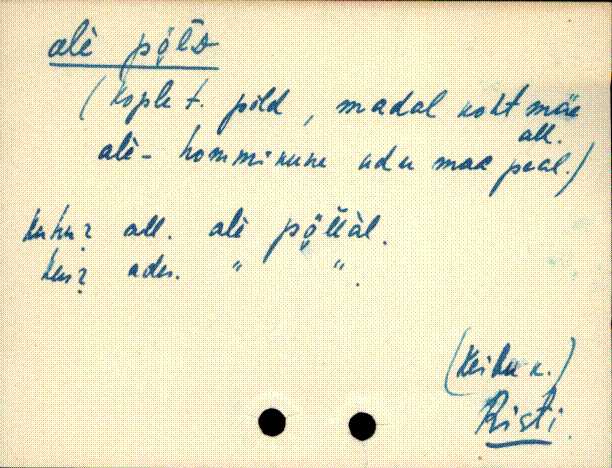 alè põlD
(Kople t. põld, madal koht mäe all.
alè - hommikune udu maa peal.)
kuhu? all. alè põllàl.
kus? ades. " ".
(Keibu k.)
Risti